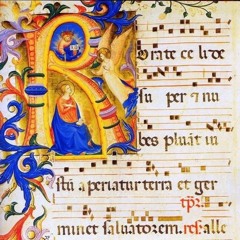 Rorate ce li de
su per & nu
bes pluāt iu
stū aperiatur terra et ger
minet saluatorem. alle